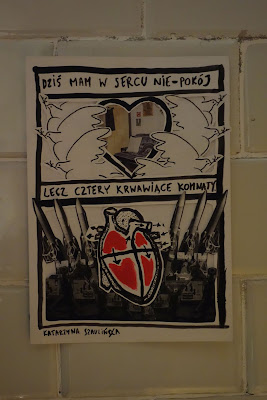 DZIŚ MAM W SERCU NIE-POKÓJ
LECZ CZTERY KRWAWIĄCE KOMNATY
KATARZYNA SZAULIŃSKA